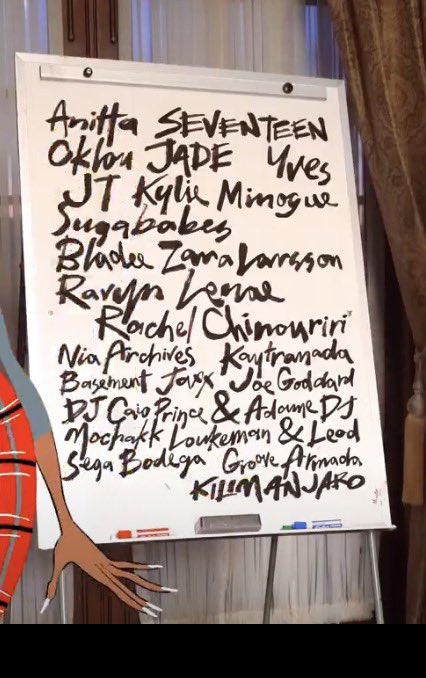 Anitta SEVENTEEN
Oklou JADE Yves
JT Kylie Minogue
Sugababes
Bladee Zara Larsson
Ravyn Lenae
Rachel Chinouriri
Nia Archives Kaytranada
Basement Jaxx Joe Goddard
DJ Caio Prince & Adame DJ
Mochakk Loukeman & Leod
Sega Bodega Groove Armada
KILIMANJARO